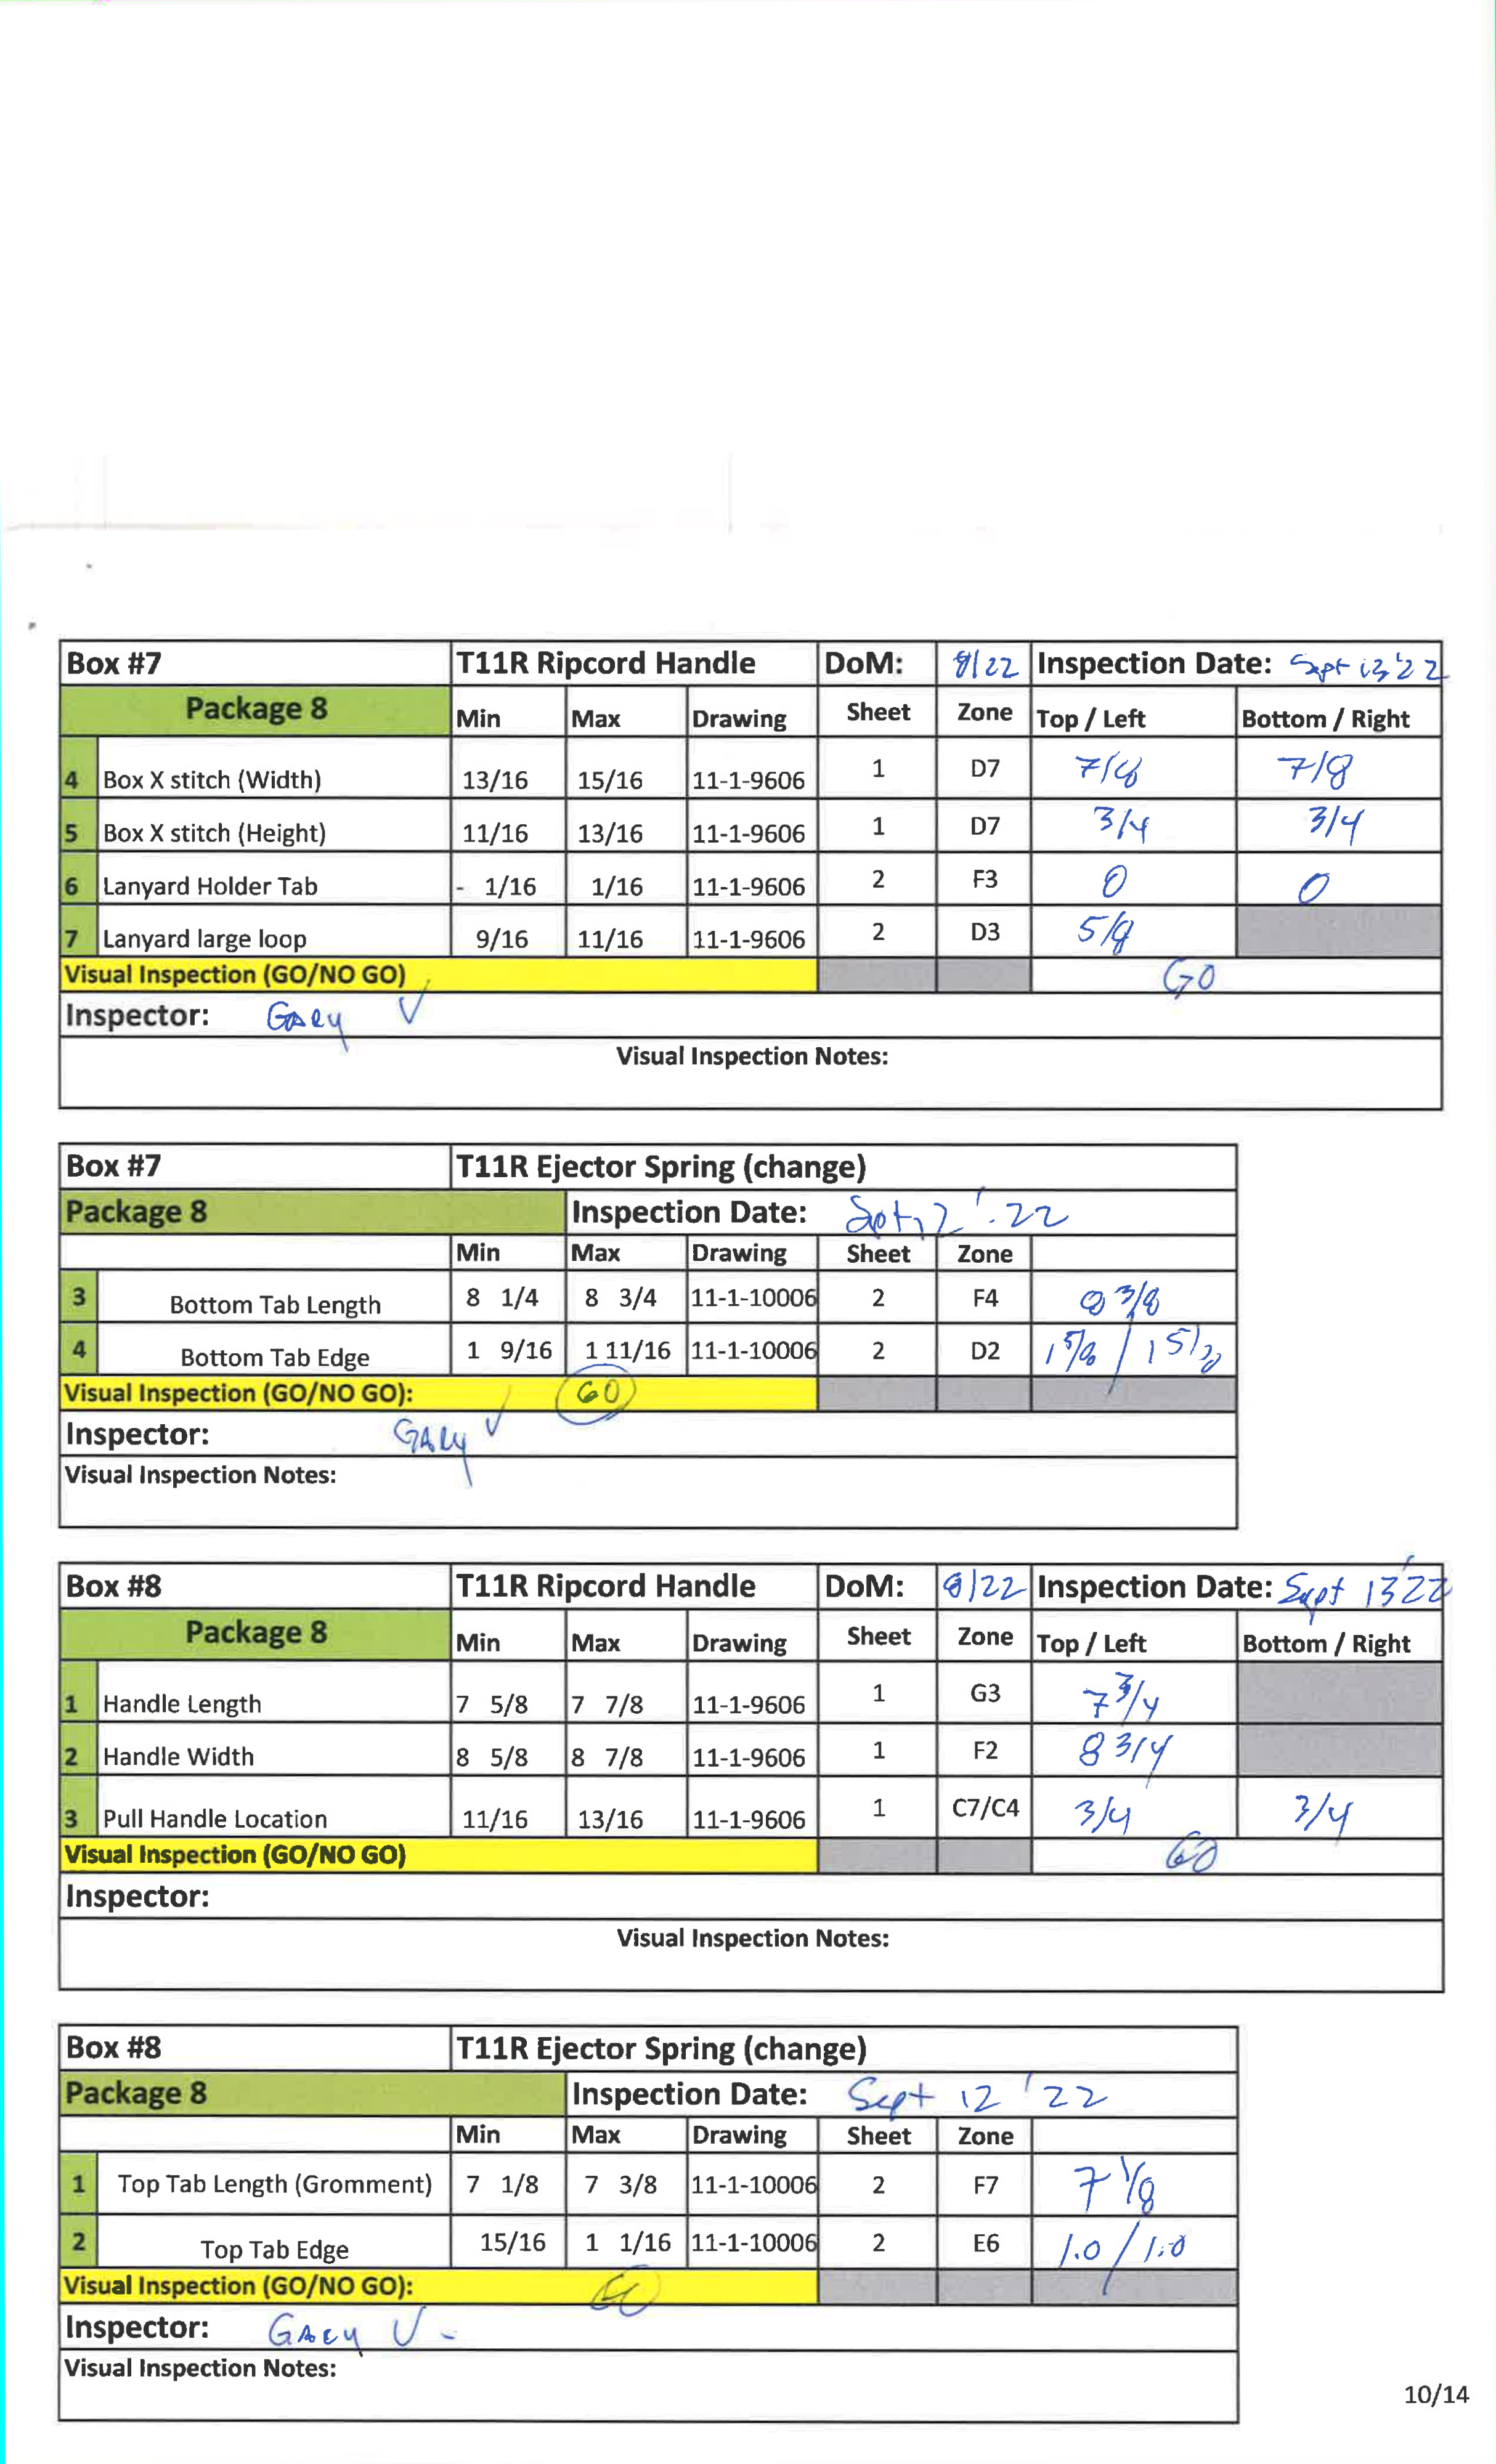 Box #7 T11R Ripcord Handle DoM: 8/22 Inspection Date: Sept 13 '22
Package 8 Min Max Drawing Sheet Zone Top / Left Bottom / Right
4 Box X stitch (Width) 13/16 15/16 11-1-9606 1 D7 7/8 7/8
5 Box X stitch (Height) 11/16 13/16 11-1-9606 1 D7 3/4 3/4
6 Lanyard Holder Tab - 1/16 1/16 11-1-9606 2 F3 0 0
7 Lanyard large loop 9/16 11/16 11-1-9606 2 D3 5/8
Visual Inspection (GO/NO GO) GO
Inspector: GARY V
Visual Inspection Notes:
Box #7 T11R Ejector Spring (change)
Package 8 Inspection Date: Sept 12 '22
Min Max Drawing Sheet Zone
3 Bottom Tab Length 8 1/4 8 3/4 11-1-10006 2 F4 8 3/8
4 Bottom Tab Edge 1 9/16 1 11/16 11-1-10006 2 D2 1 5/8 / 1 5/8
Visual Inspection (GO/NO GO): GO
Inspector: GARY V
Visual Inspection Notes:
Box #8 T11R Ripcord Handle DoM: 8/22 Inspection Date: Sept 13'22
Package 8 Min Max Drawing Sheet Zone Top / Left Bottom / Right
1 Handle Length 7 5/8 7 7/8 11-1-9606 1 G3 7 3/4
2 Handle Width 8 5/8 8 7/8 11-1-9606 1 F2 8 3/4
3 Pull Handle Location 11/16 13/16 11-1-9606 1 C7/C4 3/4 3/4
Visual Inspection (GO/NO GO) GO
Inspector:
Visual Inspection Notes:
Box #8 T11R Ejector Spring (change)
Package 8 Inspection Date: Sept 12 '22
Min Max Drawing Sheet Zone
1 Top Tab Length (Gromment) 7 1/8 7 3/8 11-1-10006 2 F7 7 1/8
2 Top Tab Edge 15/16 1 1/16 11-1-10006 2 E6 1.0 / 1.0
Visual Inspection (GO/NO GO): GO
Inspector: GARY V -
Visual Inspection Notes:
10/14